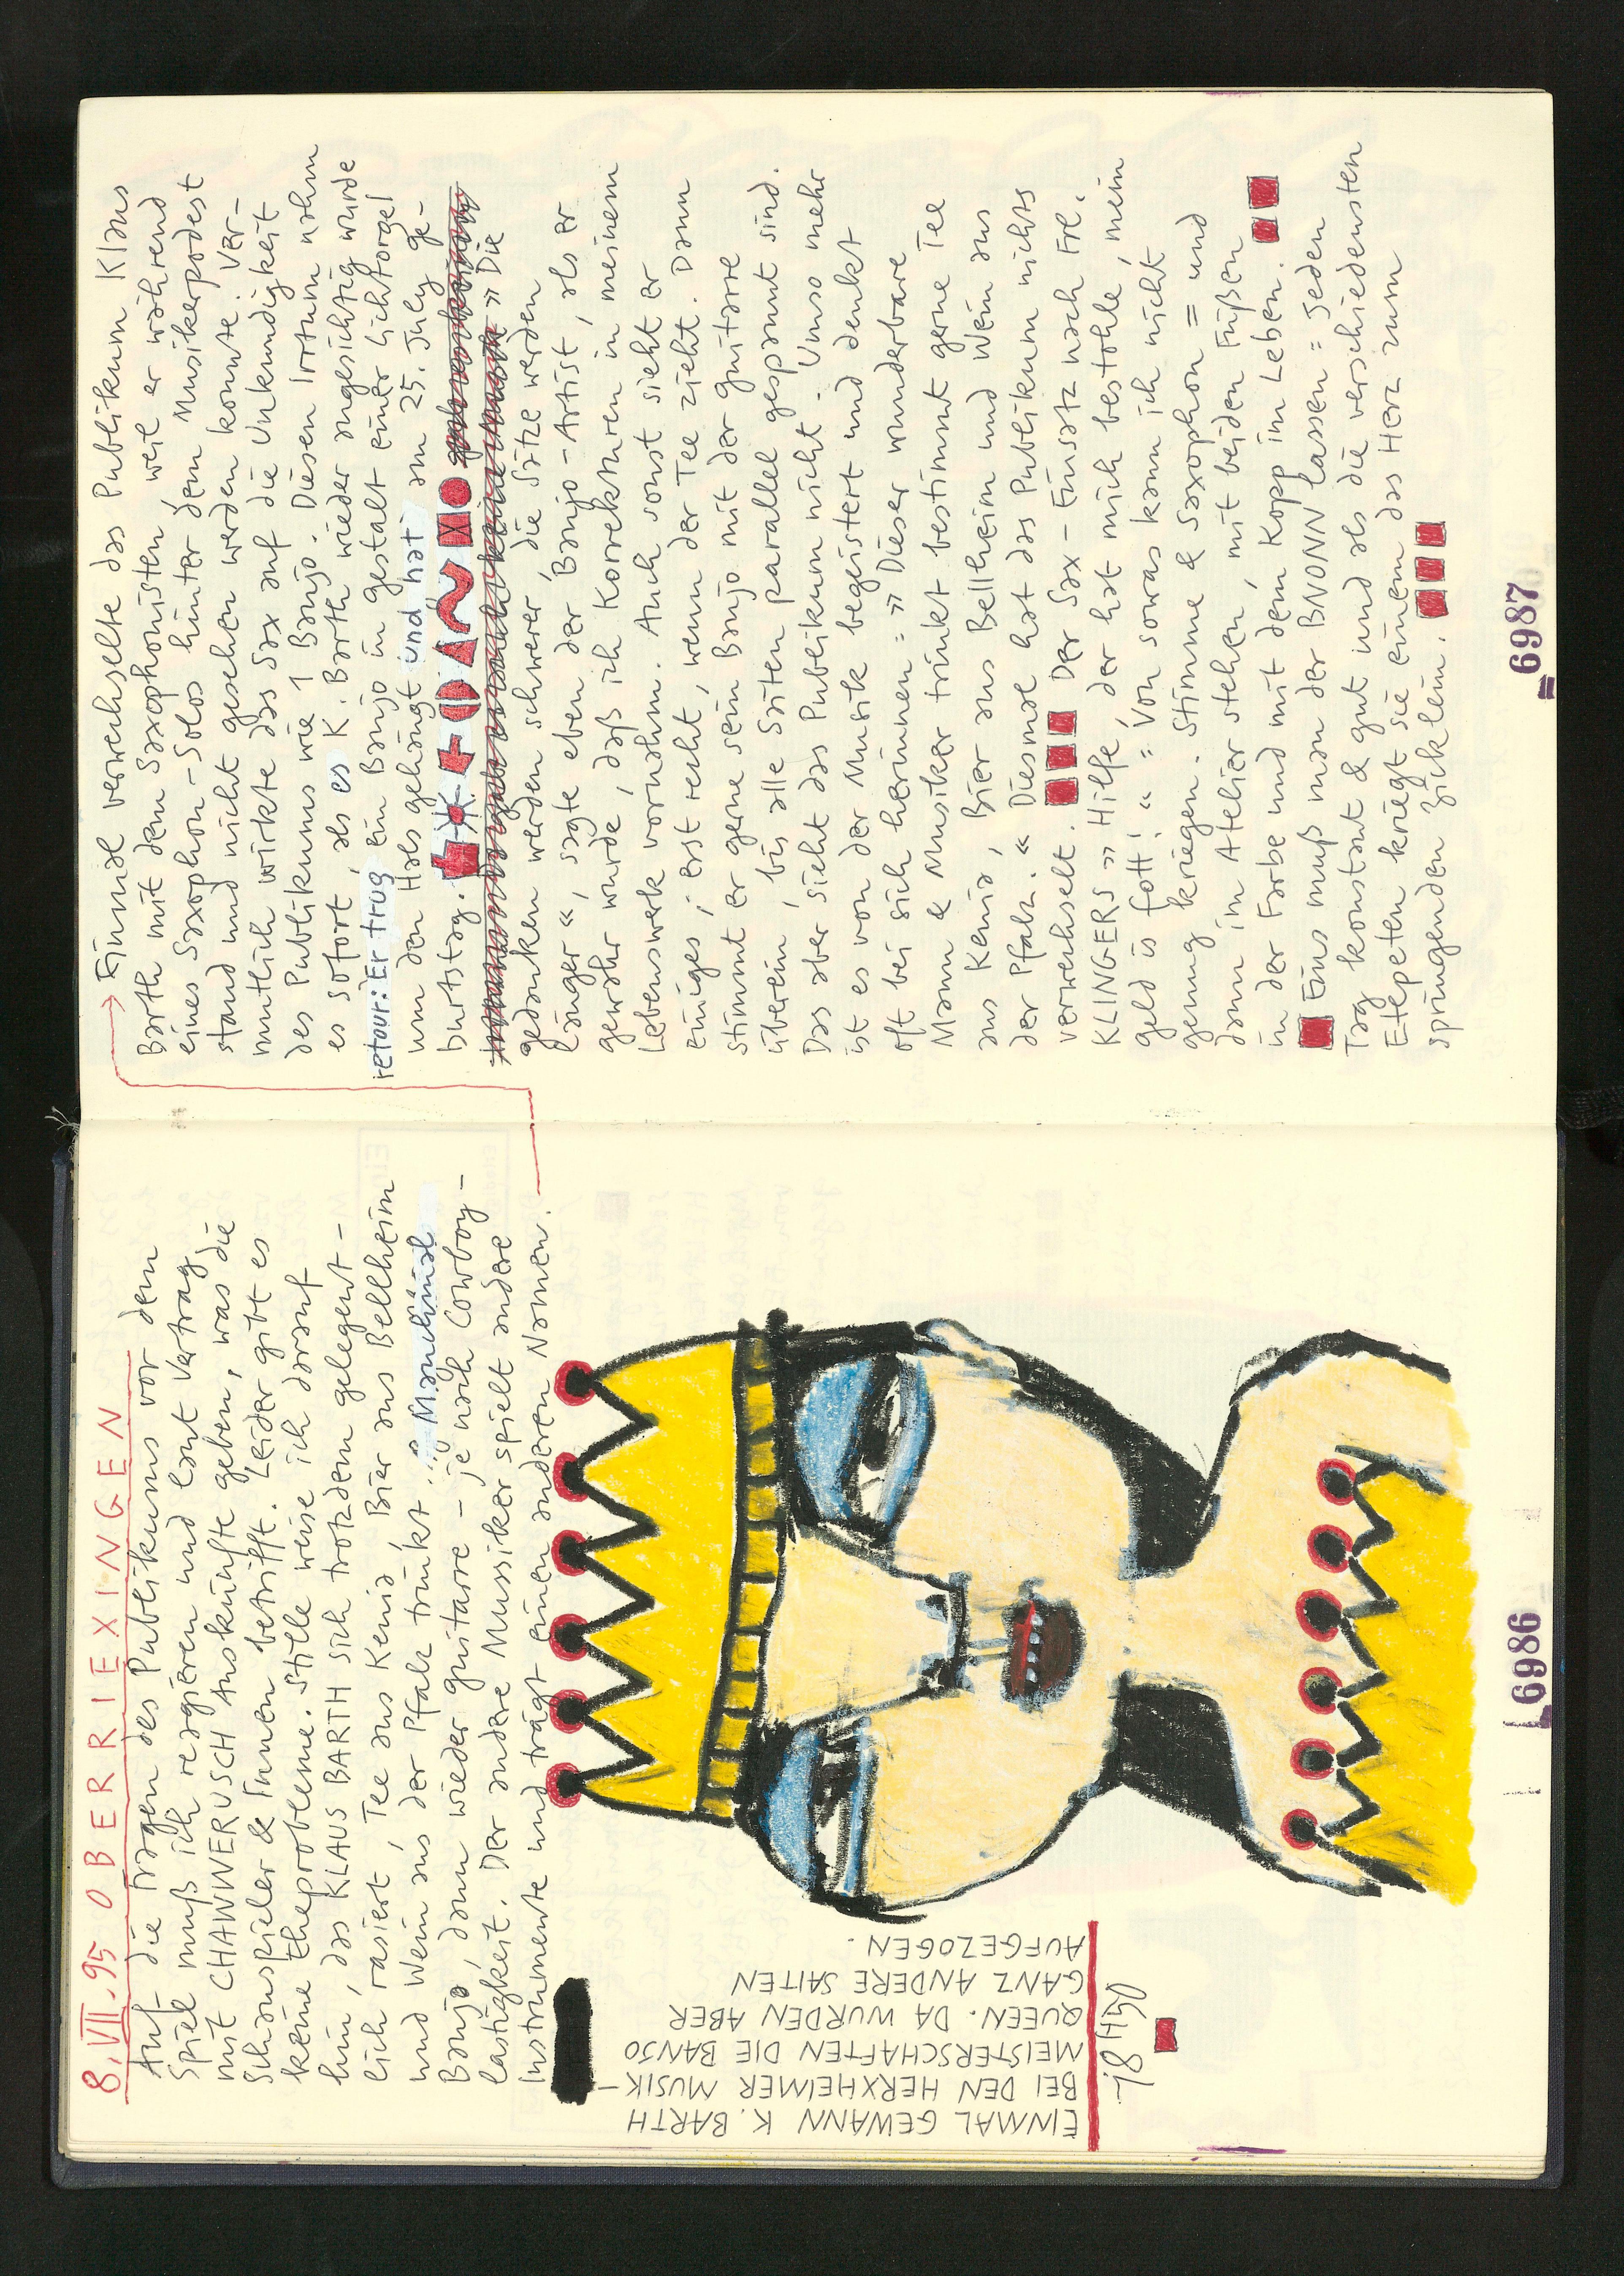 8. VII. 95 OBERRIEXINGEN
Auf die Fragen des Publikums vor dem
Spiel muß ich reagieren und laut Vertrag
mit CHAWWERUSCH Auskünfte geben, was die
Schauspieler & Innen betrifft. Leider gibt es
keine Theprobleme. Stille weise ich darauf
hin, das KLAUS BARTH sich trotzdem gelegent-
lich rasiert, Tee aus Kenia, Bier aus Bellheim
und Wein aus der Pfalz trinkt ... Manchmal
Banjo, dann wieder Guitarre - je nach Cowboy-
lastigkeit. Der andere Mussiker spielt andere
Instrumente und trägt einen anderen Namen.
EINMAL GEWANN K. BARTH
BEI DEN HERXHEIMER MUSIK-
MEISTERSCHAFTEN DIE BANJO
QUEEN. DA WURDEN ABER
GANZ ANDERE SAITEN
AUFGEZOGEN.
6986
→ Einmal verwechselte das Publikum Klaus
Barth mit dem Saxophonisten, weil er während
eines Saxophon-Solos hinter dem Musikerpodest
stand und nicht gesehen werden konnte. Ver-
mutlich wirkte das Sax auf die Unkundigkeit
des Publikums wie 1 Banjo. Diesen Irrtum nahm
es sofort, als es K. Barth wieder angesichtig wurde
retour: Er trug ein Banjo in gestalt einer Lichtorgel
um den Hals gehängt und hat am 25. July ge-
burtstag.
» Die
gedanken werden schwerer, die Sätze werden
länger«, sagte eben der Banjo-Artist, als er
gewahr wurde, daß ich Korrekturen in meinem
Lebenswerk vornahm. Auch sonst sieht er
einiges; erst recht, wenn der Tee zieht. Dann
stimmt er gerne sein Banjo mit der Guitarre
überein, bis alle Saiten parallel gespannt sind.
Das aber sieht das Publikum nicht. Umso mehr
ist es von der Musik begeistert und denkt
oft bei sich herinnen = » Dieser wunderbare
Mann & Musiker trinkt bestimmt gerne Tee
aus Kenia, Bier aus Bellheim und Wein aus
der Pfalz.« Diesmal hat das Publikum nichts
verwechselt. Der Sax-Einsatz nach Frl.
KLINGERS » Hilfe, der hat mich bestohle, mein
geld is fott! « = Von sowas kann ich nicht
genung kriegen. Stimme & Saxophon = und
dann im Atelier stehen, mit beiden Füßen
in der Farbe und mit dem Kopp im Leben.
Eins muß man der BNONN lassen = Jeden
Tag konstant & gut und als die verschiedensten
Etepeten kriegt sie einem das Herz zum
springenden Zicklein.
6987